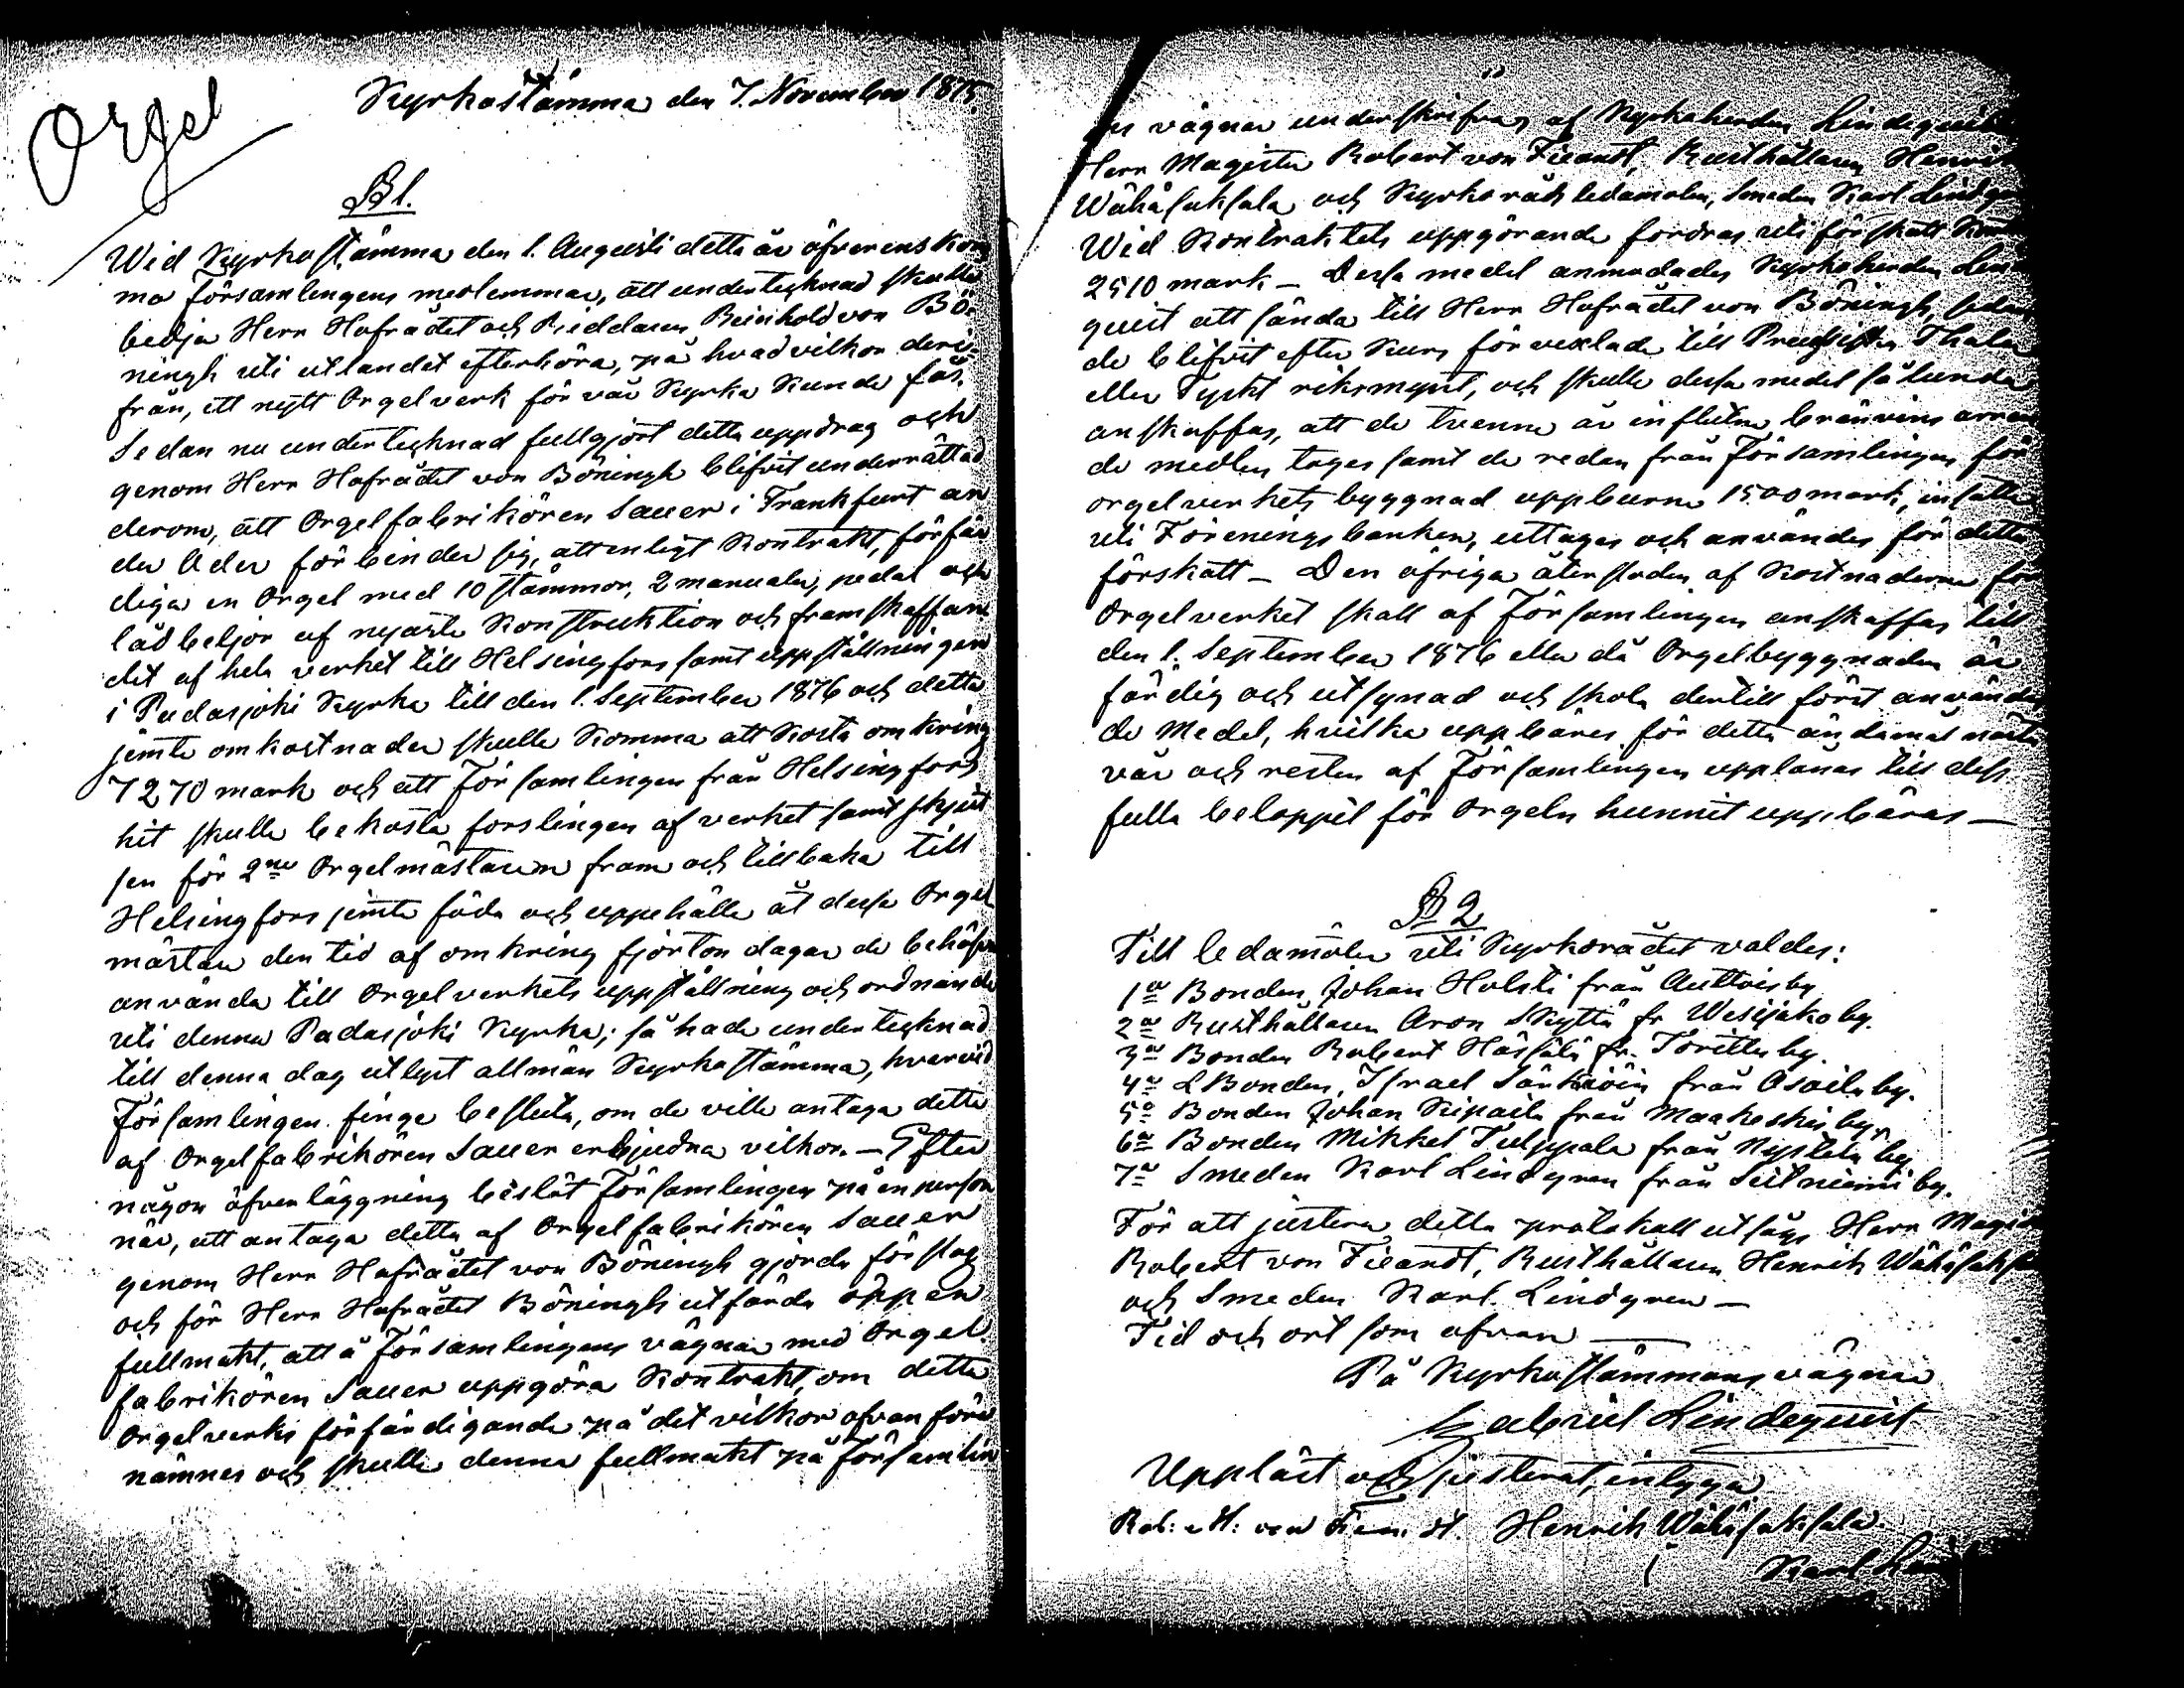 Orgel
Kyrkostämma den 7. November 1875.
§ 1.
Wid Kyrkostämma den 1. Augusti detta år öfverenskom
mo församlingens medlemmar, att undertecknad skulle
bedja Herr Hofrådet och Riddaren Reinhold von Bö-
ningh uti utlandet efterhöra, på hvad vilkor deri-
från, ett nytt Orgelverk för vår Kyrka kunde fås.
Sedan nu undertecknad fullgjort detta uppdrag och
genom Herr Hofrådet von Böningh blifvit underrättad
derom, att Orgelfabrikören Sauer i Frankfurt an
der Oder förbinder sig, att enligt Kontrakt, förfär
diga en Orgel med 10 stämmor, 2 manualer, pedal och
lådbeljor af nyaste Konstruktion och framskaffan
det af hela verket till Helsingfors samt uppställningen
i Padasjoki Kyrka till den 1. September 1876 och detta
jemte omkostnader skulle komma att kosta omkring
7270 mark och att Församlingen från Helsingfors
hit skulle bekosta forslingen af verket samt skjut
sen för 2ne Orgelmästaren fram och tillbaka till
Helsingfors jemte föda och uppehälle åt dessa Orgel
mästare den tid af omkring fjorton dagar de behöfva
använda till Orgelverkets uppställning och ordnande
uti denna Padasjoki Kyrka; så hade undertecknad
till denna dag utlyst allmän Kyrkostämma, hvarvid
Församlingen finge besluta, om de ville antaga detta
af Orgelfabrikören Sauer erbjudna vilkor. — Efter
någon öfverläggning beslöt Församlingen på en person
när, att antaga detta af Orgelfabrikören Sauer
genom Herr Hofrådet von Böningh gjorda förslag
och för Herr Hofrådet Böningh utfärda öppen
fullmakt, att å Församlingens vägnar med Orgel
fabrikören Sauer uppgöra Kontrakt, om detta
Orgelverks förfärdigande på det vilkor ofvanföre
nämnes och skulle denna fullmakt på Församlin
ens vägnar underskrifvas af Kyrkoherden Lindequist
Herr Magister Robert von Fieandt, Rusthållaren Henrik
Wähäsaksala och Kyrkoråds ledamoten, Smeden Karl Lindgren
Wid Kontraktets uppgörande fordras uti förskott
2510 mark — Dessa medel anmodades Kyrkoherden Linde
quist att sända till Herr Hofrådet von Böningh, sedan
de blifvit efter Kurs förvexlade till Preussiska Thaler
eller Tyskt riksmynt, och skulle dessa medel sålunda
anskaffas, att de tvenne år influtna bränvins arren
de medlen tages samt de redan från Församlingen för
orgelverkets byggnad uppburne 1500 mark, insatta
uti Föreningsbanken, uttages och användes för detta
förskott — Den öfriga återstoden af Kostnaderna för
Orgelverket skall af Församlingen anskaffas till
den 1. September 1876 eller då Orgelbyggnaden är
färdig och utsynad och skola dertill först användes
de medel, hvilka uppbäres för detta ändamål nästa
vår och resten af Församlingen upplånas till dess
fulla beloppet för Orgeln hunnit uppbäras —
§ 2
Till ledamöter uti Kyrkorådet valdes:
1o Bonden Johan Holsti från Auttois by
2o Rusthållaren Aron Skyttä fr. Wesijako by.
3o Bonden Robert Hässälä fr. Toritta by.
4o L Bonden Israel Särkiöin från Osoila by.
5o Bonden Johan Seipäilä från Maakeski by.
6o Bonden Mikkel Tulppala från Nystölä by
7o Smeden Karl Lindgren från Seitniemi by.
För att justera detta protokoll utsågs Herr Magister
Robert von Fieandt, Rusthållaren Henrik Wähäsaksala
och Smeden Karl Lindgren —
Tid och ort som ofvan
På Kyrkostämmans vägnar
Gabriel Lindequist
Uppläst och justerat, intyga
Rob: M: von Fieandt. Henrik Wähäsaksala.
Karl